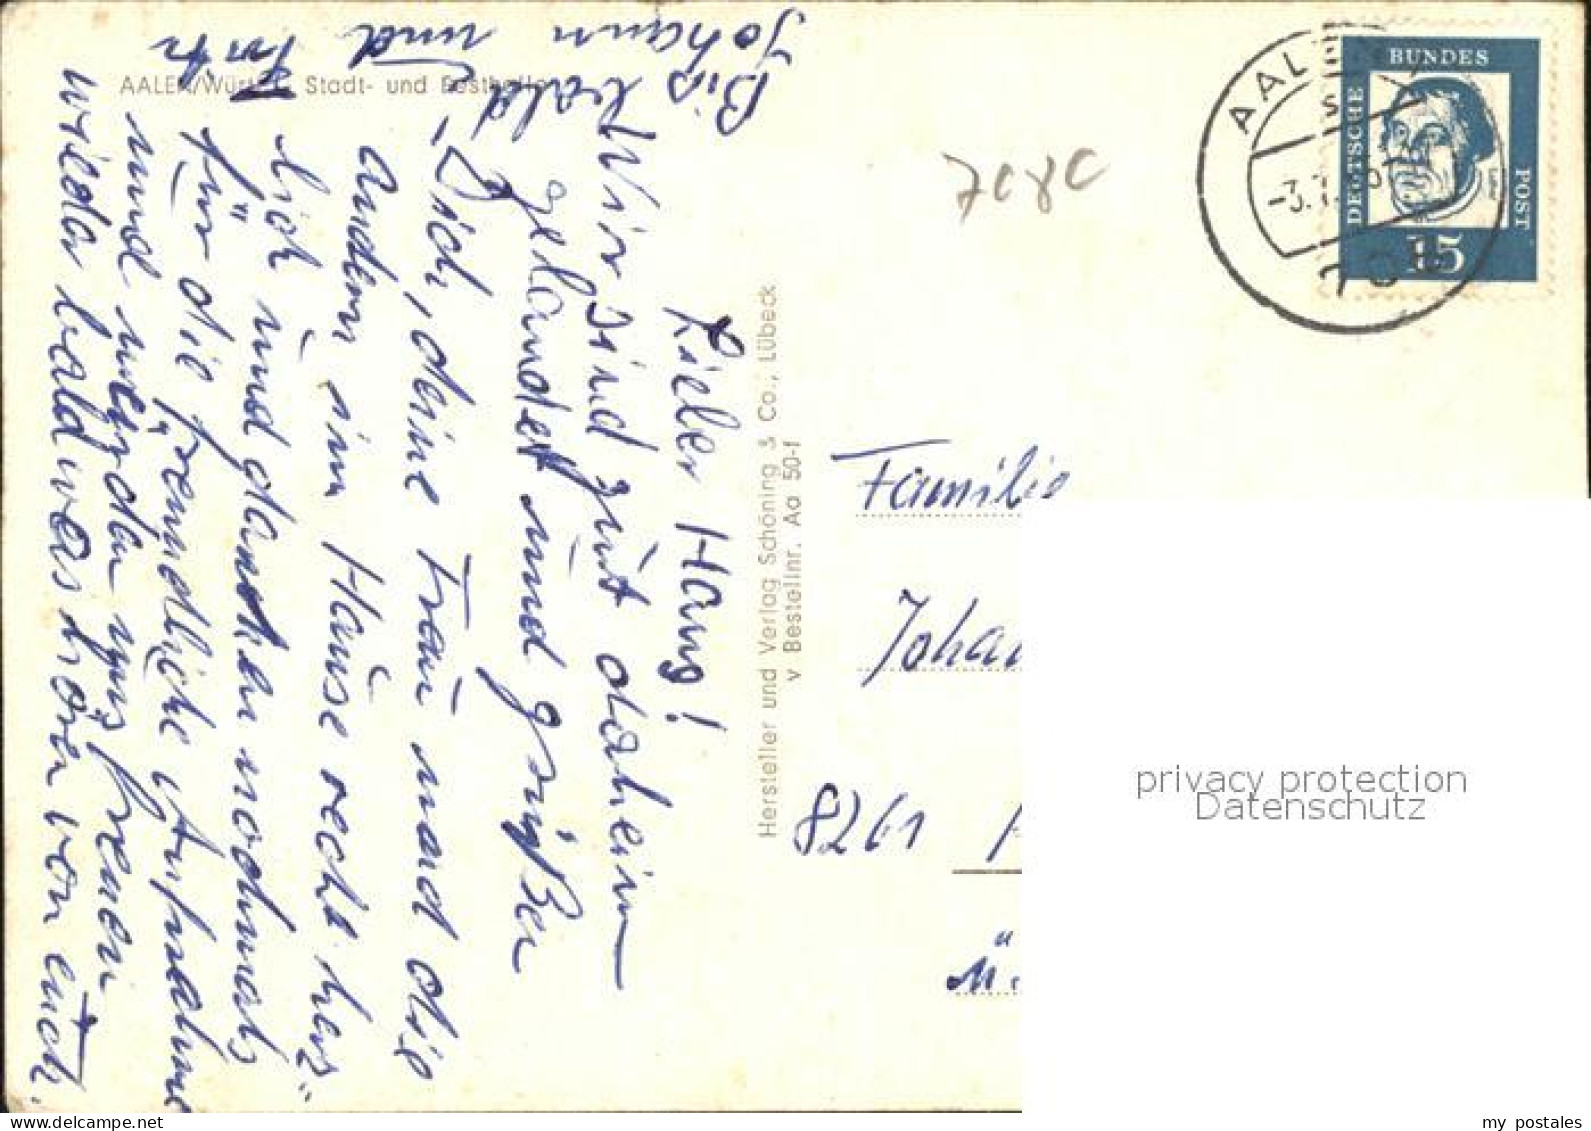 AALEN/Württ. Stadt- und Festhalle
Lieber Hans!
Wir sind gut daheim
gelandet und grüßen
Dich, deine Frau und die
andern im Hause recht herz"
lich und danken nochmals
für die freundliche Aufnahme
und würden uns freuen
wieder bald was hören von euch.
Bis bald
Johann und
Hersteller und Verlag Schöning & Co., Lübeck
v Bestellnr. Aa 50-f
7080
AALEN
-3.7.
DEUTSCHE
BUNDES
POST
Luther
15
Familie
Joha
8261
privacy protection
Datenschutz
my postales